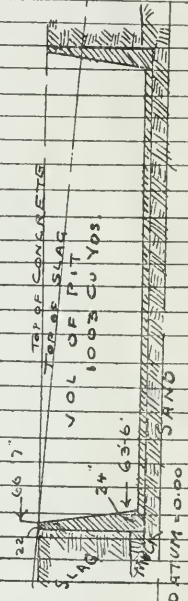 TOP OF CONCRETE
TOP OF SLAG
VOL OF PIT
1003 CU YDS.
66'7"
22"
24"
63'-6"
SLAG
SAND
DATUM = 0.00